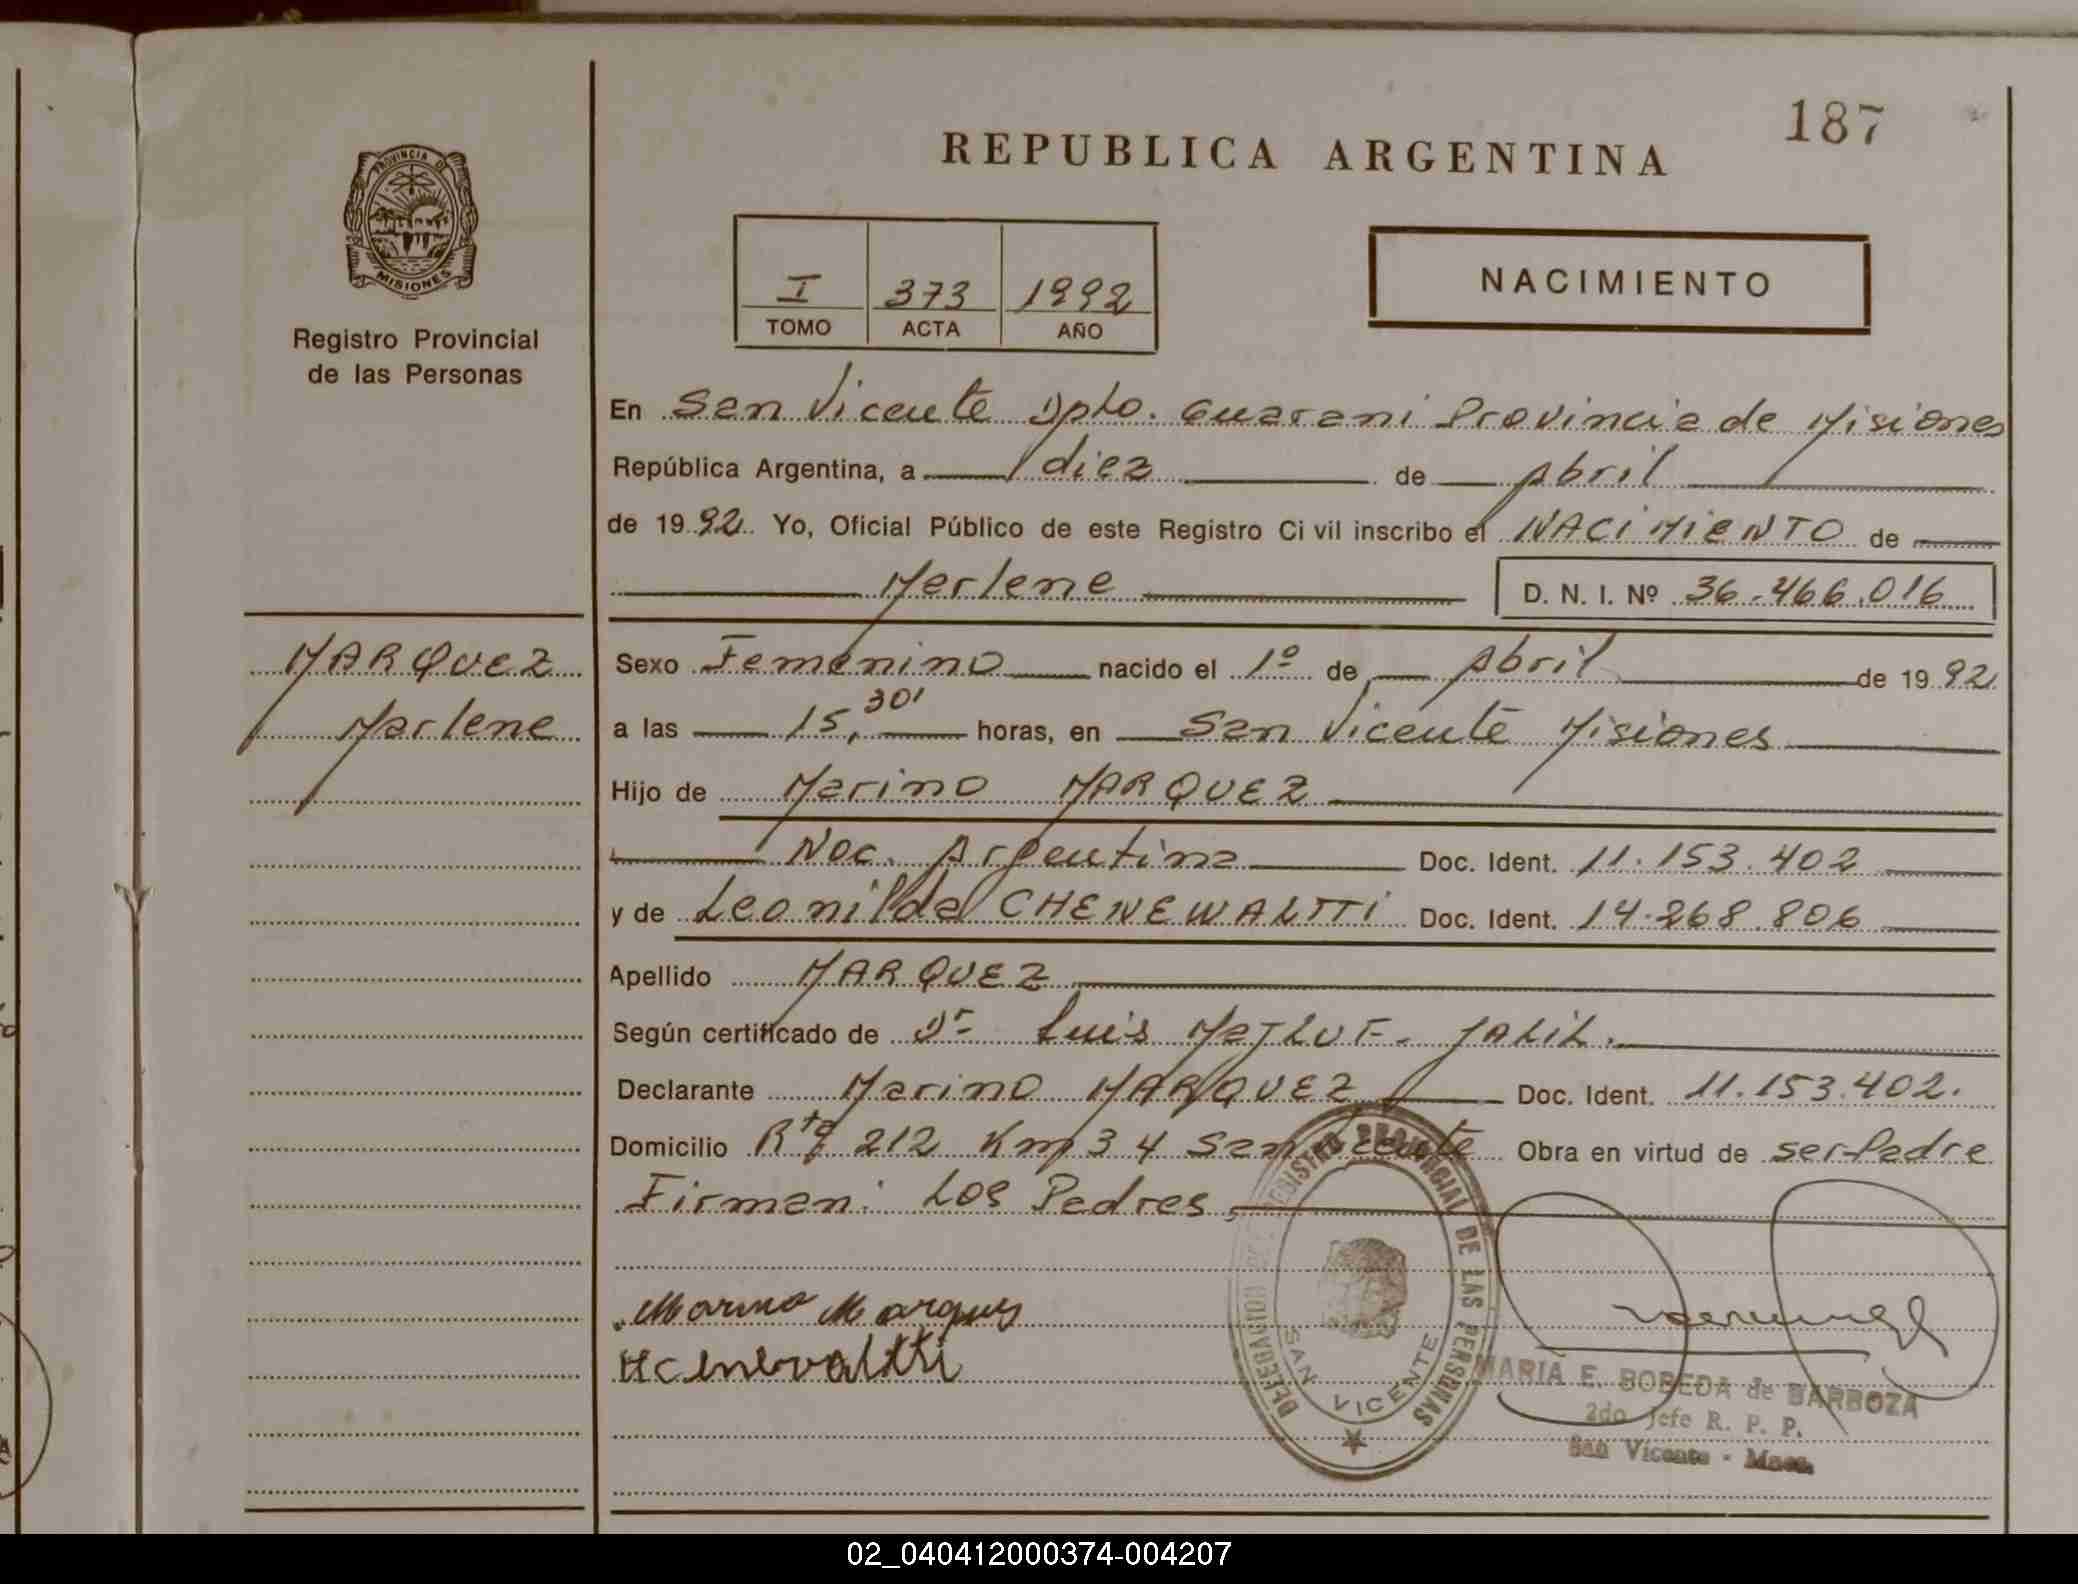 187
REPUBLICA ARGENTINA
PROVINCIA DE
MISIONES
Registro Provincial
de las Personas
I 373 1992
TOMO ACTA AÑO
NACIMIENTO
En San Vicente Dpto. Guarani Provincia de Misiones
República Argentina, a diez de Abril
de 1992 Yo, Oficial Público de este Registro Civil inscribo el NACIMIENTO de
Marlene D. N. I. Nº 36.466.016
MARQUEZ
Marlene
Sexo Femenino nacido el 1º de Abril de 1992
a las 15,30' horas, en San Vicente Misiones
Hijo de Marino MARQUEZ
Nac. Argentina Doc. Ident. 11.153.402
y de Leonilda CHENEWALTTI Doc. Ident. 14.268.806
Apellido MARQUEZ
Según certificado de Dr Luis MaTLUF. JALIL.
Declarante Marino MARQUEZ Doc. Ident. 11.153.402.
Domicilio Rta 212 Km 34 San Vicente Obra en virtud de ser Padre
Firman: Los Padres,
Marino Marques
DELEGACION REGISTRO PROVINCIAL DE LAS PERSONAS
SAN VICENTE
MARIA E. BOBEDA de BARBOZA
2do Jefe R. P. P.
San Vicente - Mnes.
02_040412000374-004207